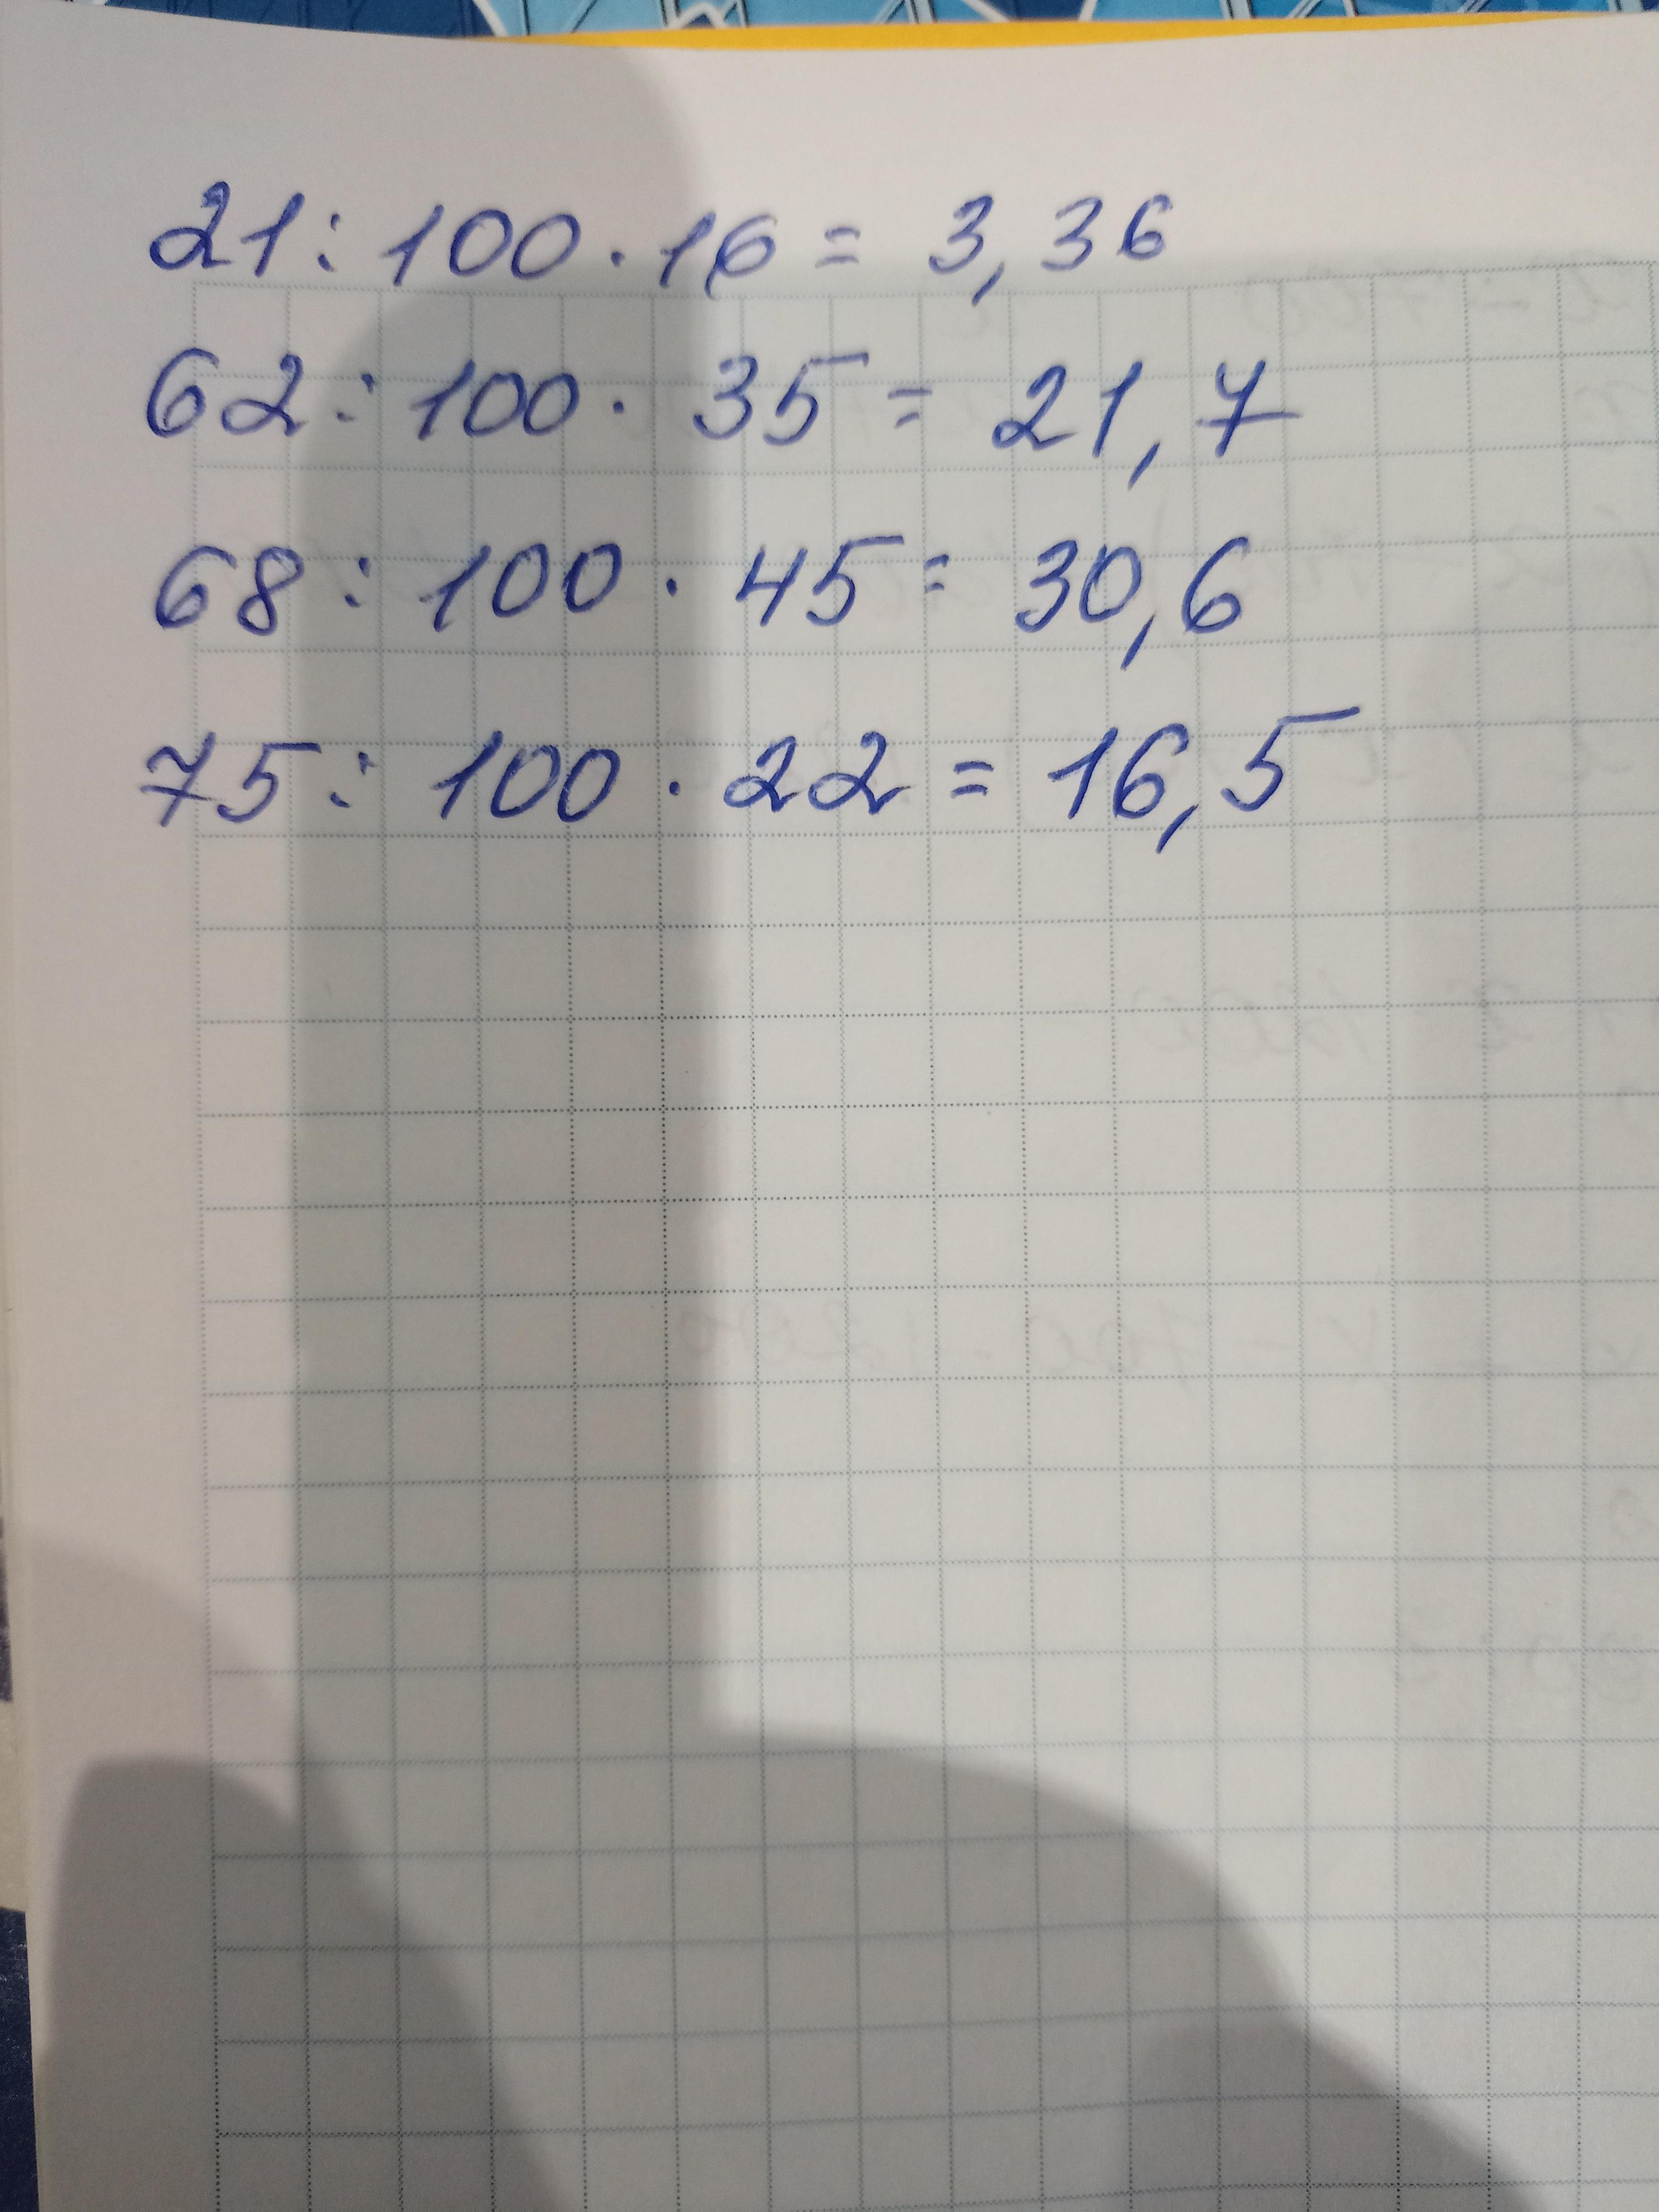 21 : 100 · 16 = 3,36
62 : 100 · 35 = 21,7
68 : 100 · 45 = 30,6
75 : 100 · 22 = 16,5